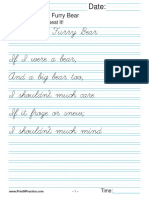 Date:
Furry Bear
eat It!
Furry Bear
If I were a bear,
And a big bear too,
I shouldn't much care
If it froze or snew;
I shouldn't much mind
www.PrintNPractice.com - 1 - Time: